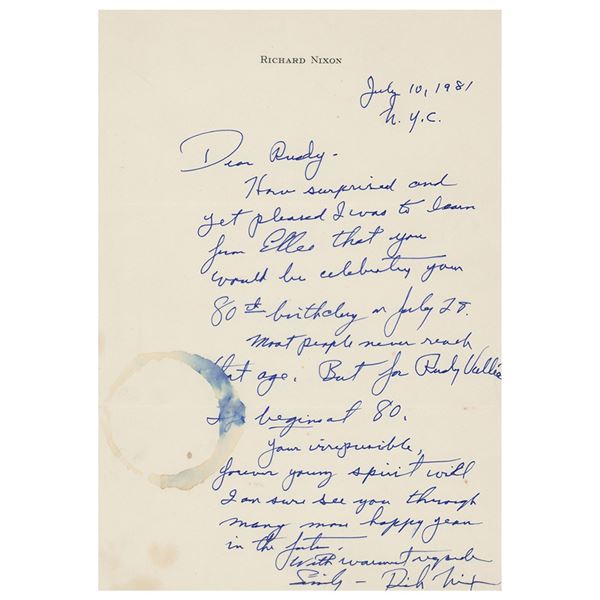 RICHARD NIXON
July 10, 1981
N.Y.C.
Dear Rudy -
How surprised and
yet pleased I was to learn
from Ellee that you
would be celebrating your
80th birthday on July 28.
Most people never reach
that age. But for Rudy Vallee
begins at 80.
Your irrepressible,
forever young spirit will
I am sure see you through
many more happy years
in the future.
With warmest regards
Sincerely - Dick Nixon